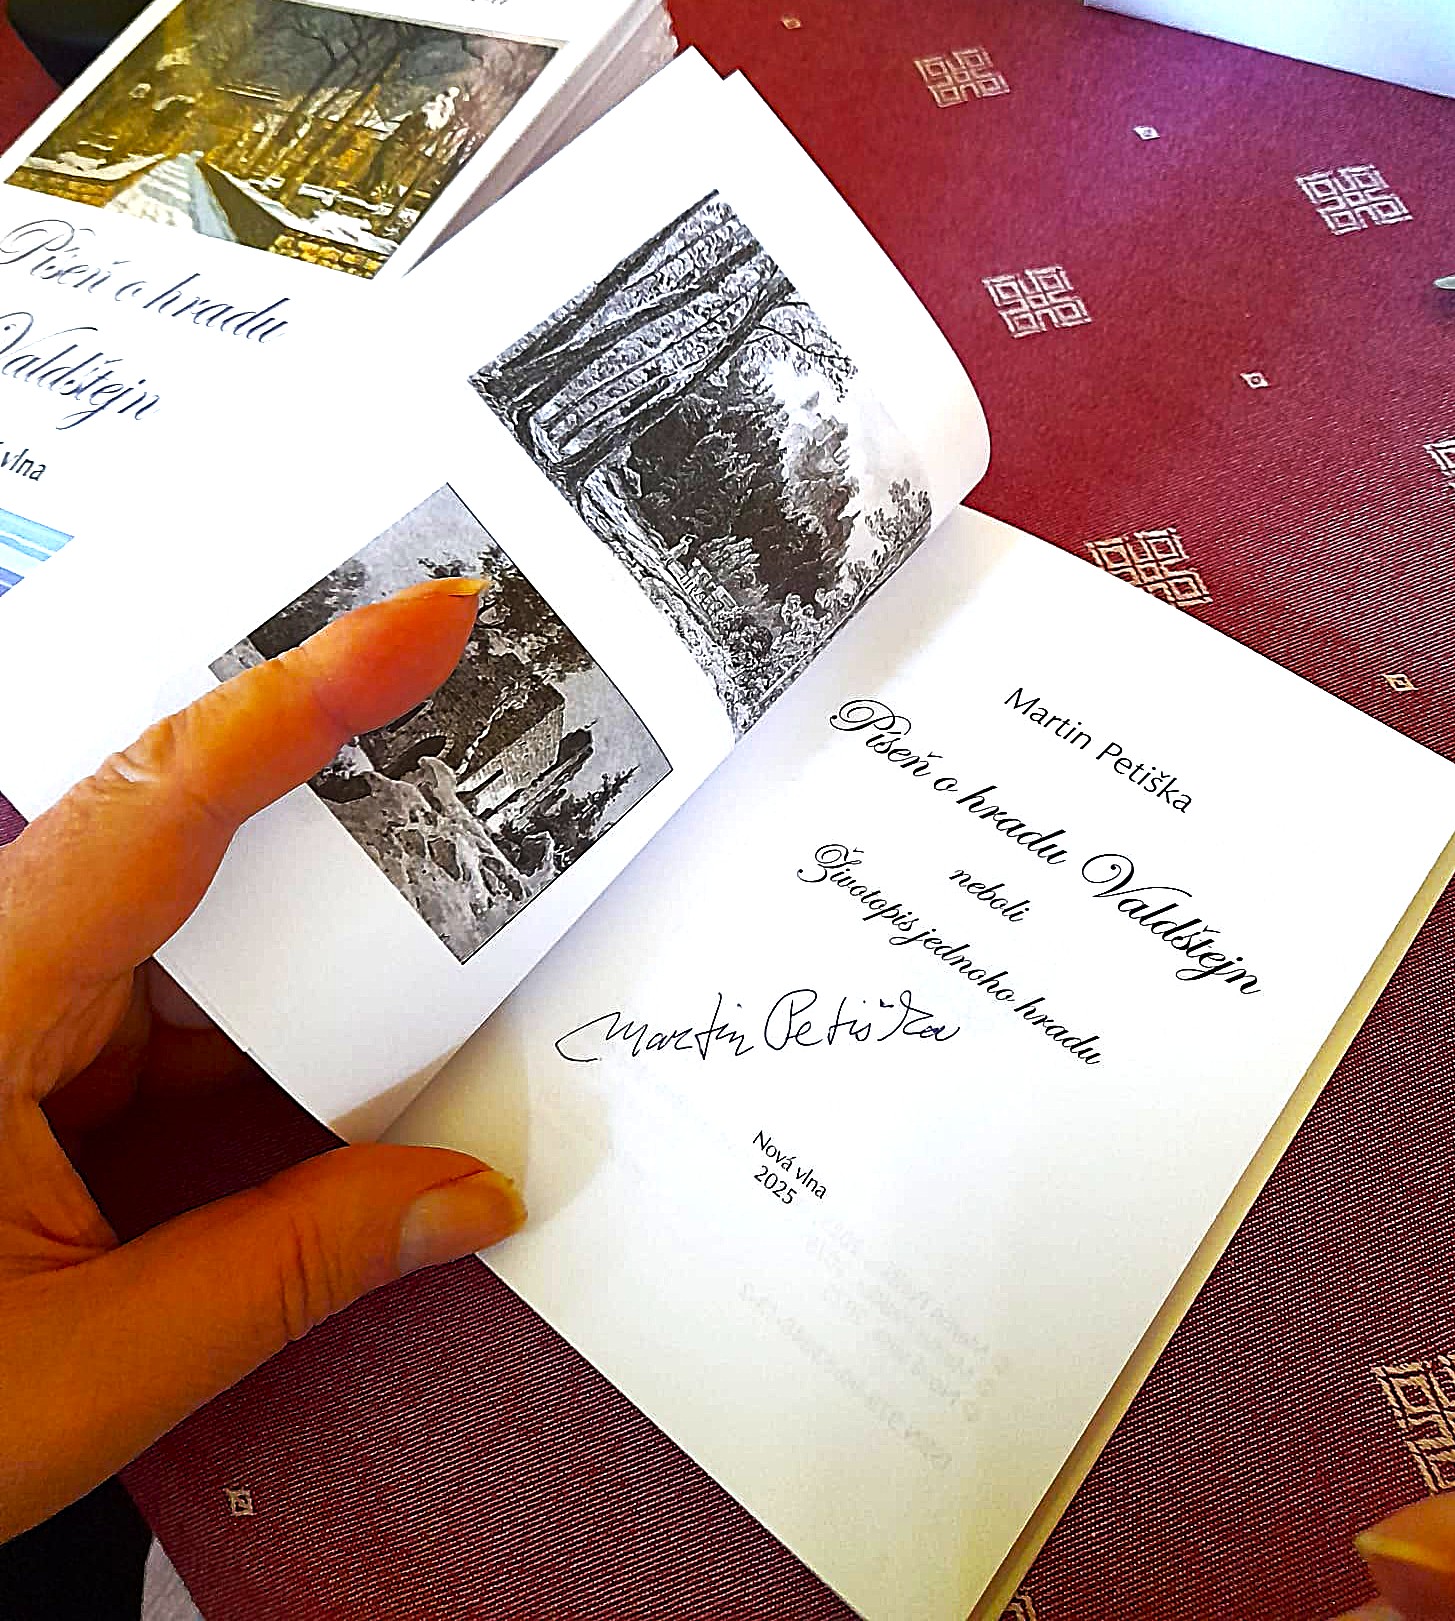 Píseň o hradu
Valdštejn
vlna
Martin Petiška
Píseň o hradu Valdštejn
neboli
Životopis jednoho hradu
Martin Petiška
Nová vlna
2025